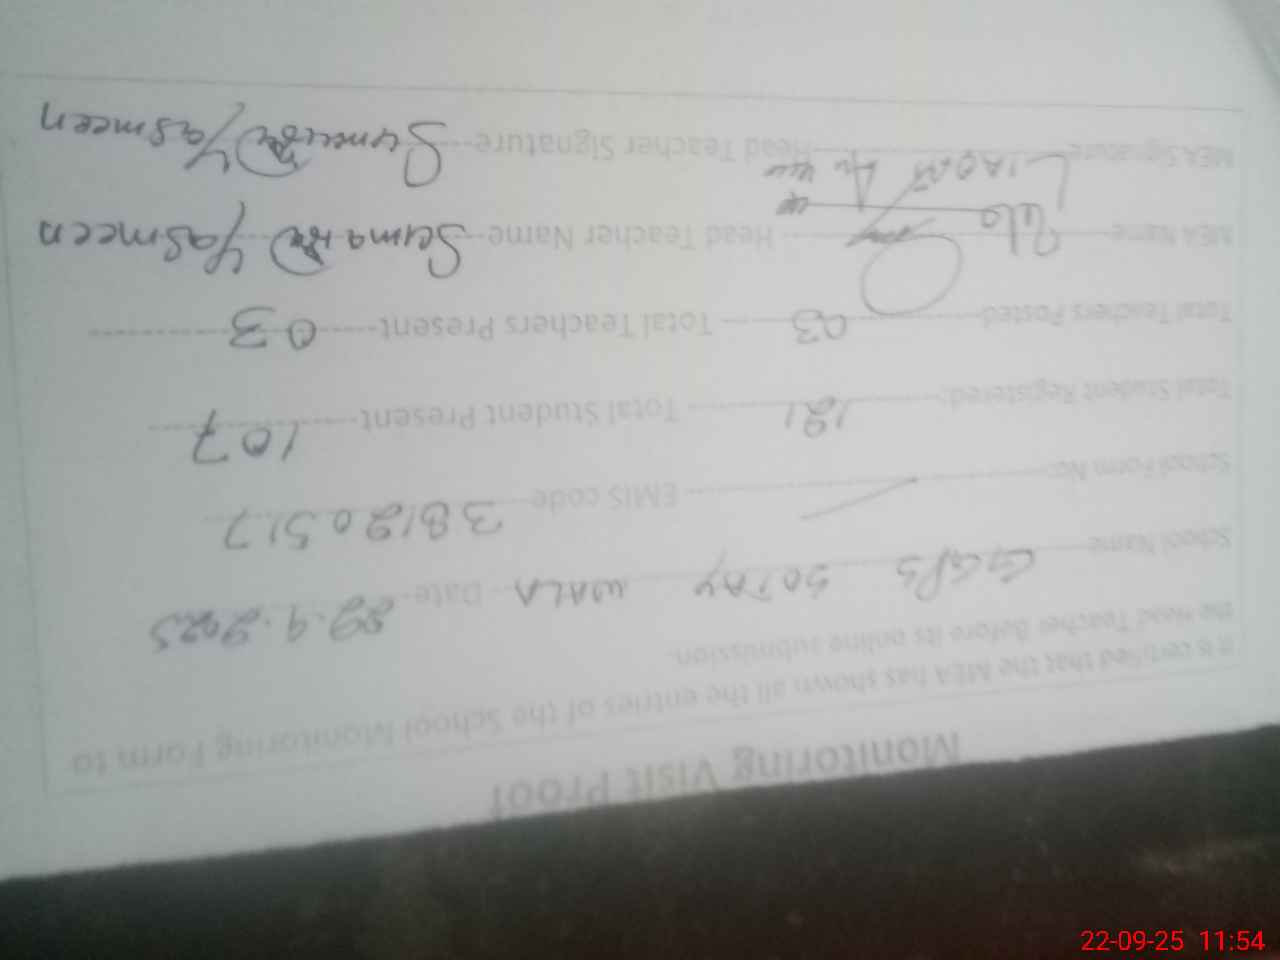 Monitoring Visit Proof
It is certified that the MEA has shown all the entries of the School Monitoring Form to
the Head Teacher Before its online submission.
School Name GGPS SOTAY WALA Date 22.9.2025
School Form No: EMIS code 38120517
Total Student Registered: 121 Total Student Present 107
Total Teachers Posted 03 Total Teachers Present 03
MEA Name Head Teacher Name Yasmeen
MEA Signature LIAQAT Head Teacher Signature Yasmeen
22-09-25 11:54